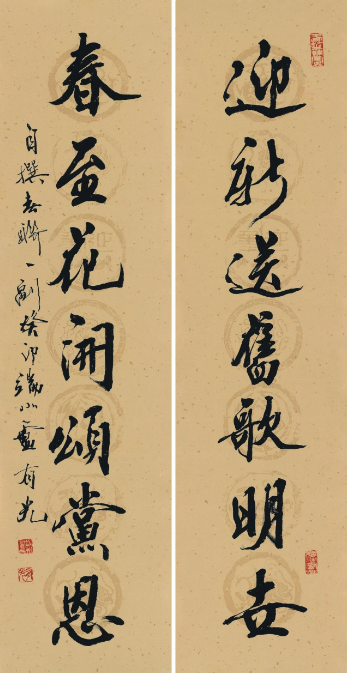 迎新送舊歌明世
春至花開頌黨恩
自撰春聯一副癸卯端小靈有光